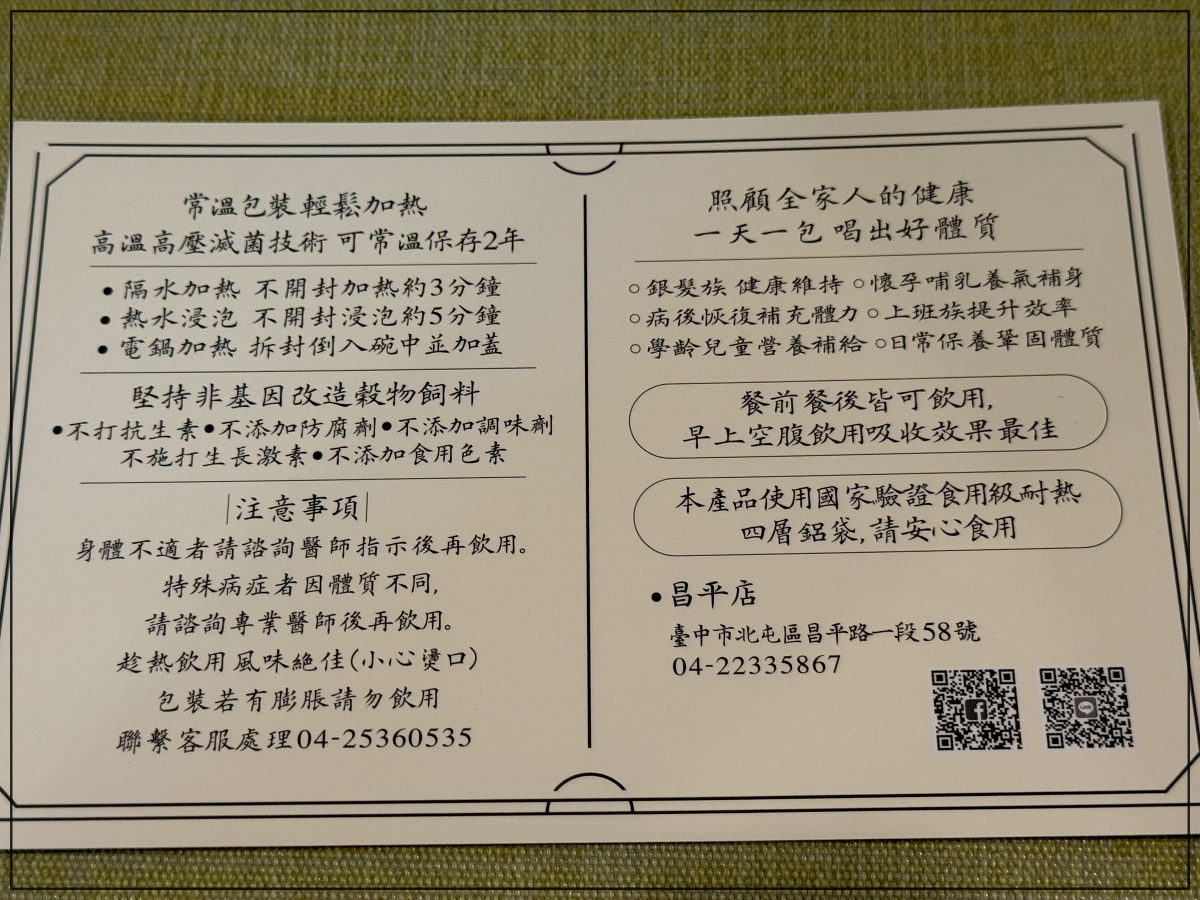 常溫包裝輕鬆加熱
高溫高壓滅菌技術 可常溫保存2年
•隔水加熱 不開封加熱約3分鐘
•熱水浸泡 不開封浸泡約5分鐘
•電鍋加熱 拆封倒入碗中並加蓋
堅持非基因改造穀物飼料
•不打抗生素•不添加防腐劑•不添加調味劑
不施打生長激素•不添加食用色素
|注意事項|
身體不適者請諮詢醫師指示後再飲用。
特殊病症者因體質不同,
請諮詢專業醫師後再飲用。
趁熱飲用風味絕佳(小心燙口)
包裝若有膨脹請勿飲用
聯繫客服處理04-25360535
照顧全家人的健康
一天一包 喝出好體質
○銀髮族 健康維持 ○懷孕哺乳養氣補身
○病後恢復補充體力 ○上班族提升效率
○學齡兒童營養補給 ○日常保養鞏固體質
餐前餐後皆可飲用,
早上空腹飲用吸收效果最佳
本產品使用國家驗證食用級耐熱
四層鋁袋,請安心食用
•昌平店
臺中市北屯區昌平路一段58號
04-22335867